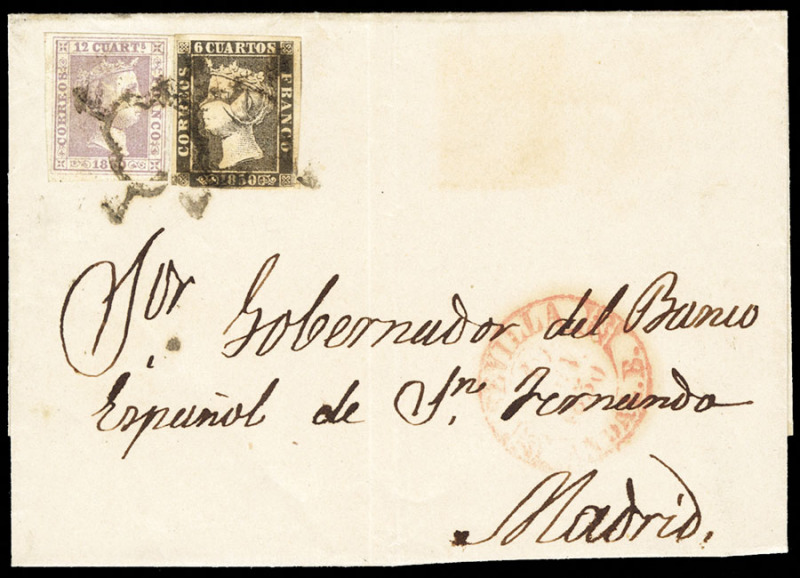 12 CUARTs
CORREOS
FRANCO
6 CUARTOS
CORREOS
FRANCO
1850
Sor Gobernador del Banco
Español de Sn. Fernando
Madrid.
SEVILLA